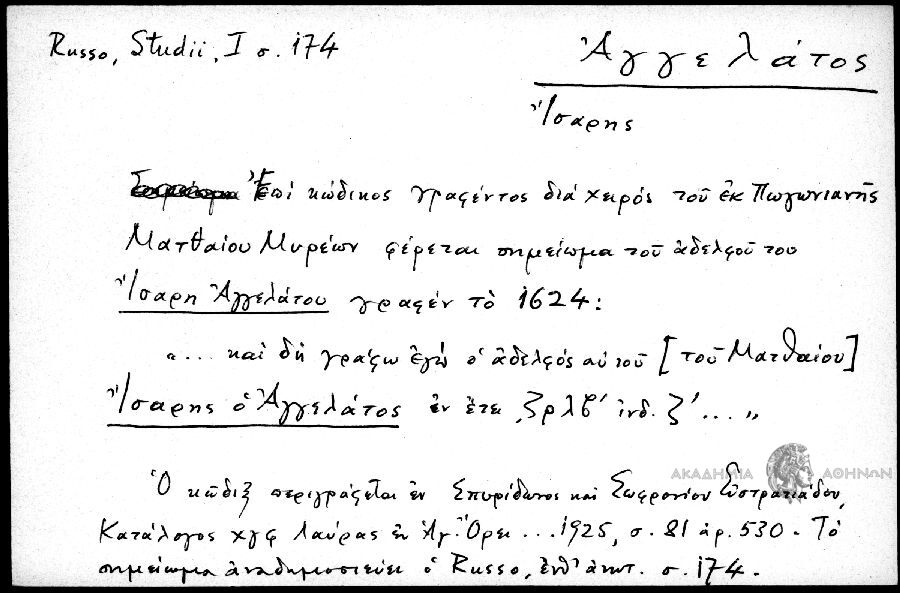 Russo, Studii, I σ. 174
Ἀγγελάτος
Ἴσαρης
Ἐπί κώδικος γραφέντος διά χειρός τοῦ ἐκ Πωγωνιανῆς
Ματθαίου Μυρέων φέρεται σημείωμα τοῦ ἀδελφοῦ του
Ἴσαρη Ἀγγελάτου γραφέν τὸ 1624:
"... καὶ δὴ γράφω ἐγὼ ὁ ἀδελφός αὐτοῦ [τοῦ Ματθαίου]
Ἴσαρης ὁ Ἀγγελάτος ἐν ἔτει ͵ζρλβ' ἰνδ. ζ' ..."
ΑΚΑΔΗΜΙΑ ΑΘΗΝΩΝ
Ὁ κῶδιξ περιγράφεται ἐν Σπυρίδωνος καὶ Σωφρονίου Εὐστρατιάδου,
Κατάλογος χγφ Λαύρας ἐν Ἁγ. Ὄρει ... 1925, σ. 81 ἀρ. 530. Τὸ
σημείωμα ἀναδημοσιεύει ὁ Russo, ἐνθ' ἀνωτ. σ. 174.